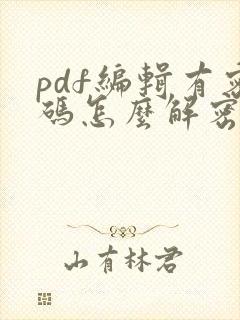 pdf編輯有密
碼怎麼解密
山有林君